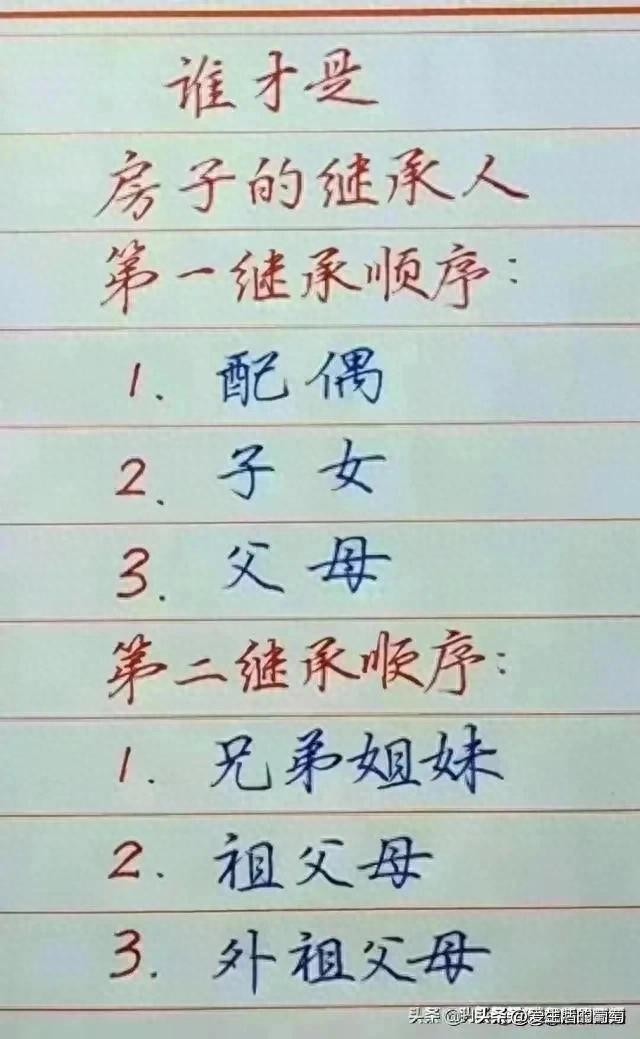 谁才是
房子的继承人
第一继承顺序：
1、配偶
2、子女
3、父母
第二继承顺序：
1．兄弟姐妹
2．祖父母
3．外祖父母
头条 @爱生活的葡萄